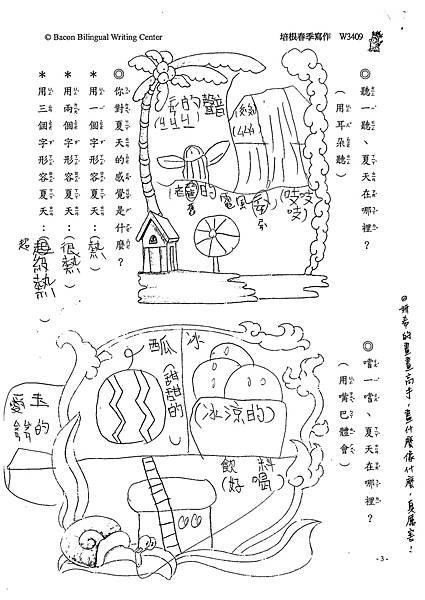 © Bacon Bilingual Writing Center
培根春季寫作 W3409
◎聽一聽、夏天在哪裡?
(用耳朵聽)
的聲音
的電風
(吱吱吱)
◎你對夏天的感覺是什麼?
*用一個字形容夏天:(熱)
*用兩個字形容夏天:(很熱)
*用三個字形容夏天:超級熱)
超
◎嚐一嚐、夏天在哪裡?
(用嘴巴體會)
冰
(冰涼的)
瓜
(甜甜的)
飲料
(好喝)
的畫畫高手,畫什麼像什麼,真厲害!
- 3 -